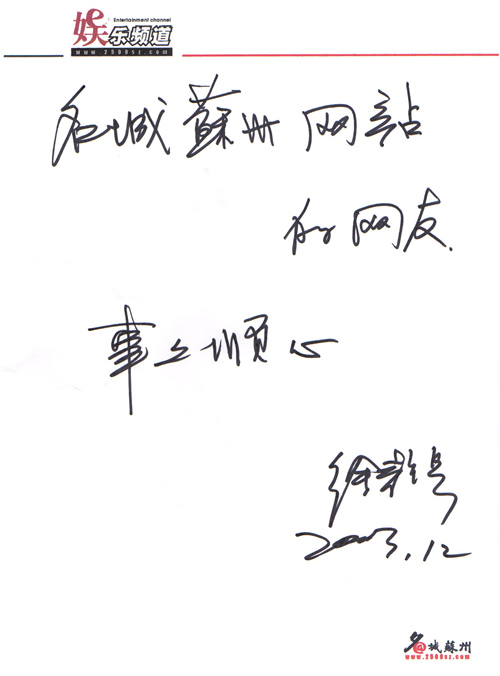 娱乐频道
Entertainment channel
www.2500sz.com
名城蘇州网站
的网友
事事顺心
2003.12
名城蘇州
www.2500sz.com